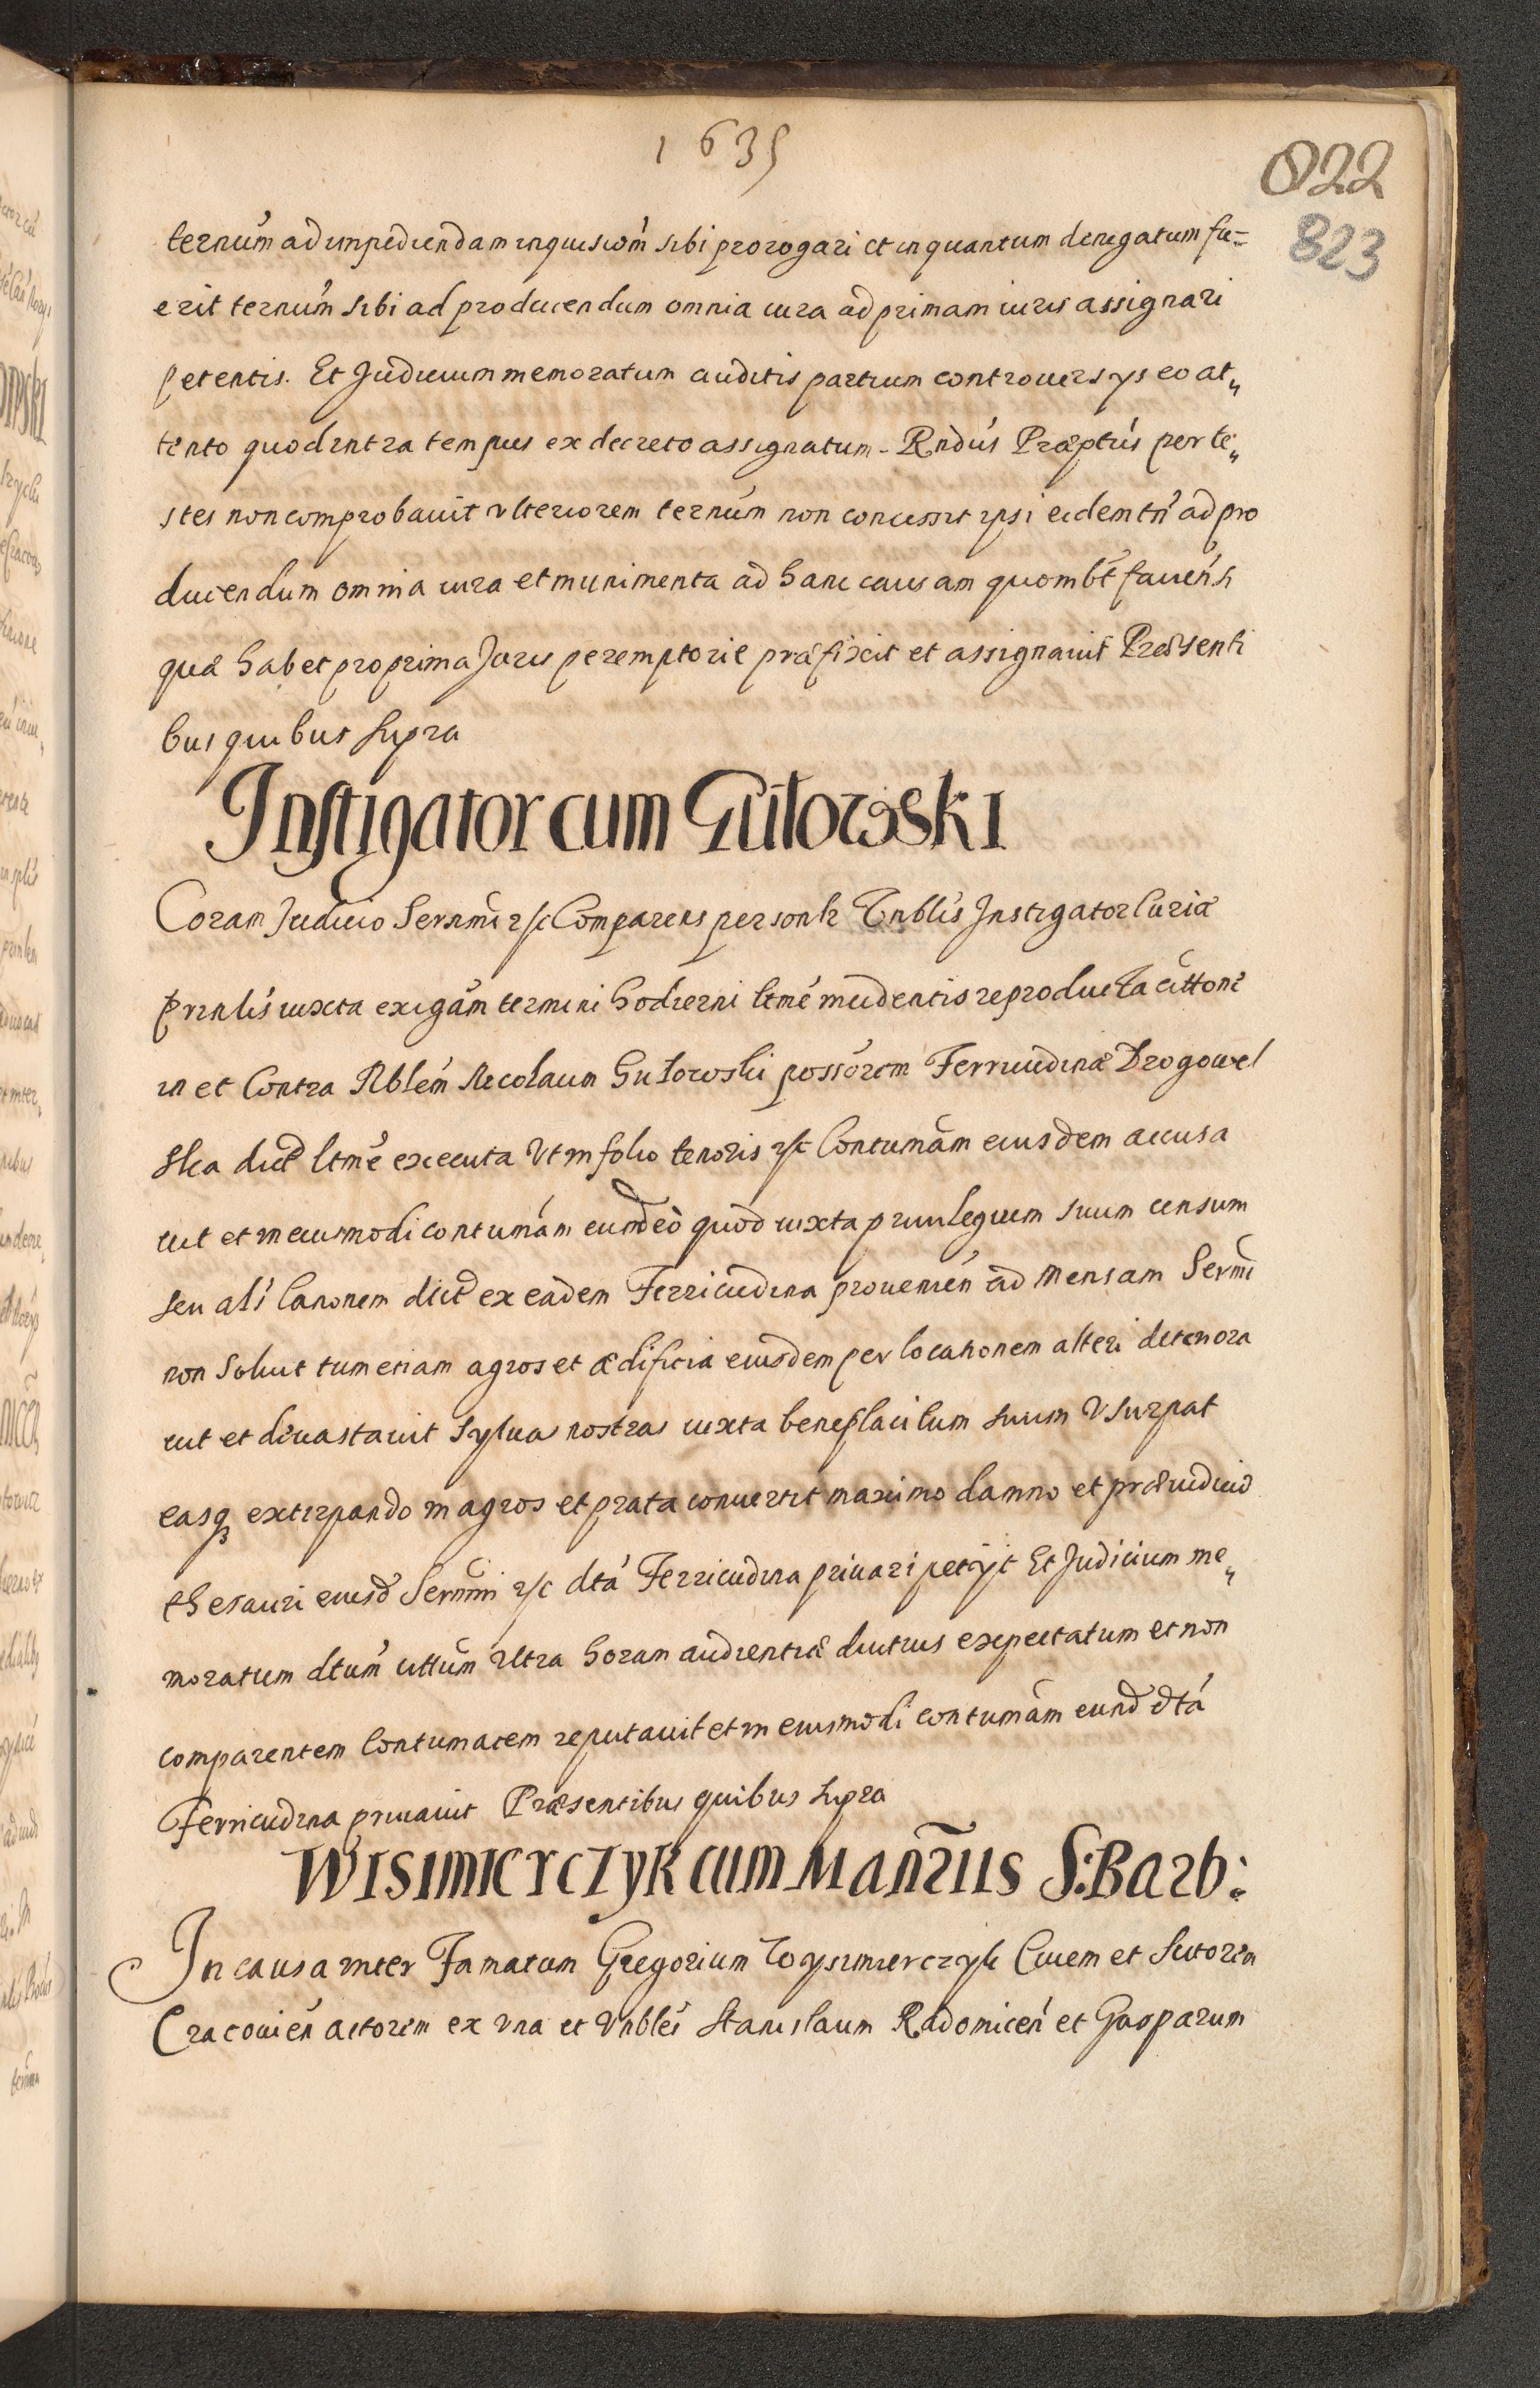 1635
022
823
ternum̄ ad impediendam inquisiom̄ sibi prorogari et inquantum denegatum fu=
erit ternum̄ sibi ad producendum omnia iura ad primam iuris assignari
petentis. Et Judicium memoratum auditis partium controuersys eo at„
tento quod intra tempus ex decreto assignatum. Rndus̄ Præptus̄ per te„
stes non comprobauit vlteriorem ternum̄ non concessit ipsi eidem tn̄ ad pro
ducendum omnia iura et munimenta ad hanc causam quombt̄ fauen̄
quæ habet pro prima Juris peremptorie præfixit et assignauit Præsenti
bus quibus supra
Instigator cum Gutowski
Coram Judicio Sernmi̅ etc Comparens personlr Vnblis̄ Instigator Curiæ
prnlis̄ iuxta exigām termini hodierni ltme̅ incidentis reproducta citto̅ne
in et Contra Nblem̄ Nicolaum Gutowski possorem̄ Ferricudinæ Drogowel
ska dict ltme̅ executa Vt in folio tenoris etc Contumām eiusdem accusa
uit et in eiusmodi contumām eund eo quod iuxta priuilegium suum censum
seu als̄ Canonem dict ex eadem Ferricudina prouenien̄ ad Mensam Sernmi̅
non soluit tum etiam agros et ædificia eiusdem per locationem alteri deteriora
uit et deuastauit syluas nostras iuxta beneplacitum suum Vsurpat
easq extirpando in agros et prata conuertit maximo damno et præiudicio
thesauri eiusd Sernmi̅ etc dta̅ Ferricudina priuari petyt Et Judicium me„
moratum dtum̄ cittum̄ Vltra horam audientiæ diutius expectatum et non
comparentem Contumacem reputauit et in eiusmodi contumām eund dta̅
Ferricudina priuauit Præsentibus quibus supra
Wisimierczyk cum Manr̄iis S: Barb:
In causa inter Famatum Gregorium Wysimierczyk Ciuem et Sutorem
Cracouien̄ actorem ex Vna et Vnbles̄ Stanislaum Radomicen̄ et Gasparum